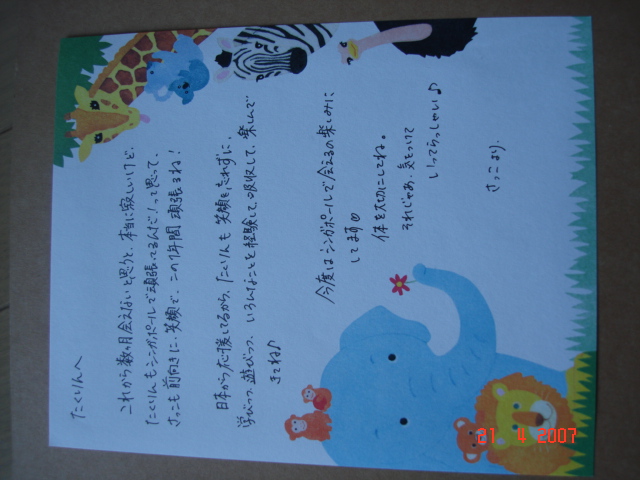 たくりんへ
これから数ヶ月会えないと思うと、本当に寂しいけど、
たくりんもシンガポールで頑張ってるんだ!って思って、
さっこも前向きに、笑顔で、この1年間頑張るね!
日本から応援してるから、たくりんも笑顔を忘れずに、
学びつつ、遊びつつ、いろんなことを経験して、吸収して、楽しんで
きてね♪
今度はシンガポールで会えるの楽しみに
してます♡
体を大切にしてね。
それじゃあ、気をつけて
いってらっしゃい♪
さっこより.
21 4 2007